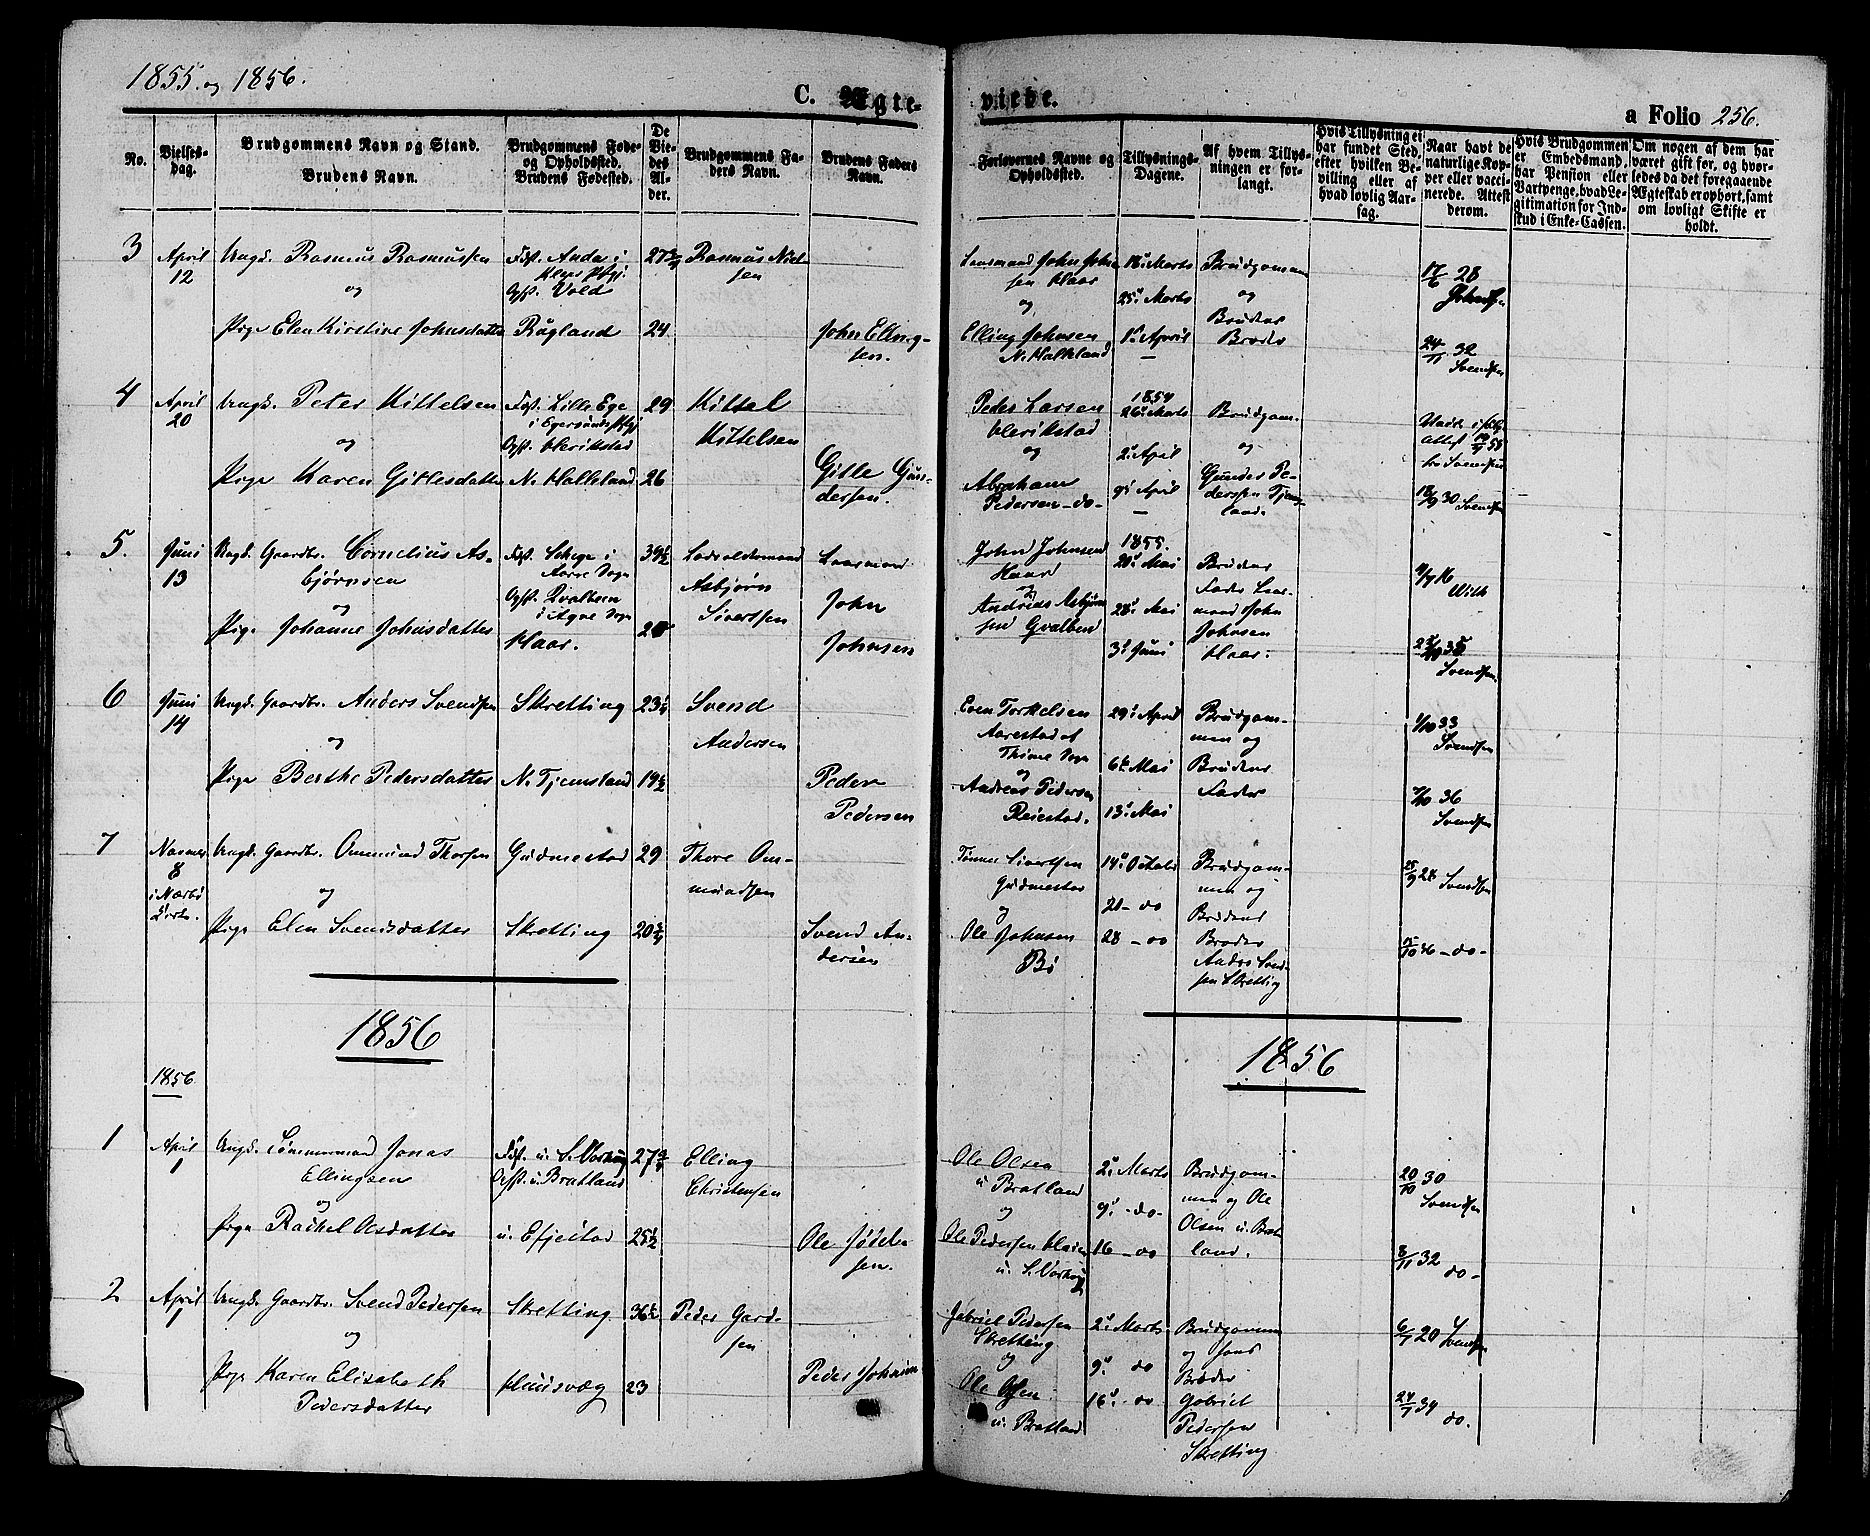 1855. og 1856.
C. Ægte-
viede.
a Folio 256.
No.
Vielses-
dag.
Brudgommens Navn og Stand.
Brudens Navn.
Brudgommens Føde-
og Opholdssted.
Brudens Fødested.
De
Vie-
des
Al-
der.
Brudgommens Fa-
ders Navn.
Brudens Faders
Navn.
Forlovernes Navne og
Opholdssted.
Tillysnings-
Dagene.
Af hvem Tillys-
ningen er for-
langt.
Hvis Tillysning ei
har fundet Sted,
efter hvilken Be-
villing eller af
hvad lovlig Aar-
sag.
Naar havt de
naturlige Kop-
per eller vacci-
nerede. Attest
derom.
Hvis Brudgommen
er Embedsmand,
har Pension eller
Vartpenge, hvad Le-
gitimation for Ind-
skud i Enke-Cassen.
Om nogen af dem har
været gift før, og hvor-
ledes da det foregaaende
Ægteskab er ophørt, samt
om lovligt Skifte er
holdt.
3
April
12
Ungk. Rasmus Rasmussen
og
Pige Elen Kirstine Johnsdatter
Fst. Anda i
Klep Pgj:
Opst. Vold
Røgland
27 3/4
24
Rasmus Niel-
sen
John Elling-
sen.
Laasmand John John-
sen Haar
og
Elling Johnsen
N. Halleland
18. Marts
25. Marts
1. April
Brudgommen
og
Brudens
Broder
17/6 28
24/11 32
Svendsen
4
April
20
Ungk. Peter Kittelsen
og
Pige Karen Gitlesdatter
Fst. Lille Ege
i Egersunds Pgj
Opst. Ueriksstad
N. Halleland
29
26
Kittel
Kittelsen
Gitle Gun-
dersen.
Peder Larsen
og
Abraham
Pedersen -do-
1854
26. Marts
2. April
9. April
Brudgom.
og
Gunder Pe-
dersen Tjems-
land.
30 Svendsen
5.
Juni
13
Ungk. Gaardbr. Cornelius As-
bjørnsen
og
Pige Johanne Johnsdatter
Fst. Schege i
Opst. Qvalbein
i Ogne Sogn
Haar.
39 1/2
Asbjørn
Sivertsen
Laasmand
John
Johnsen
John Johnsen
Haar
og
Andreas Asbjørn-
sen Qvalbein
1855.
20. Mai
28. Mai
3. Juni
Brudens
Fader Laas-
mand John
Johnsen
Haar.
Svendsen
6
Juni
14
Ungk. Gaardbr. Anders Svendsen
og
Pige Berthe Pedersdatter
Skretting
N. Tjemsland
23 1/4
19 1/2
Svend
Andersen
Peder
Pedersen
Even Torkelsen
Aarestad af
Thime Sogn
og
Andreas Pedersen
Reiestad.
29. April
6. Mai
13. Mai
Brudgom-
men og
Brudens
Fader
33
Svendsen
36
Svendsen
7
8
i Nærbø
Kirke.
Ungk. Gaardbr. Ommund Thorsen
og
Pige Elen Svendsdatter
Gudmestad
Skretting
29
20 3/4
Thore Om-
mundsen
Svend An-
dersen
Tønnes Sivertsen
Gudmestad
og
Ole Johnsen
Bø
14. Octob.
21 - do
28 - do
Brudgom-
men og
Brudens
Broder
Anders Svend-
sen Skretting
25/9 28 Svendsen
-do-
1856
1856
1856.
1
April
1
Ungk. Tømmermand Jonas
Ellingsen
og
Pige Rachel Olsdatter
Fst. u. S. Varhoug
Opst. u. Bratland
u. Efjestad
27 3/4
25 1/2
Elling
Christensen
Ole Jødel-
sen.
Ole Olsen
u Bratland
og
Ole Pedersen
u. S. Varhoug
2. Marts
9. -do-
16 -do
Brudgom-
men og Ole
Olsen u. Brat-
land.
20/10 30
Svendsen
8/11 32
do-
2
April
1
Ungk. Gaardbr. Svend Pedersen
og
Pige Karen Elisabeth
Pedersdatter
Skretting
Huusvæg
36 1/2
23
Peder Gard-
sen
Peder Johnsen
Gabriel Pedersen
Skretting
og
Ole Olsen
u. Bratland
2. Marts
9. do
16. -do
Brudgommen
og hans
Broder
Gabriel
Pedersen
Skretting
6/7 20 Svendsen
24/7 34
do.